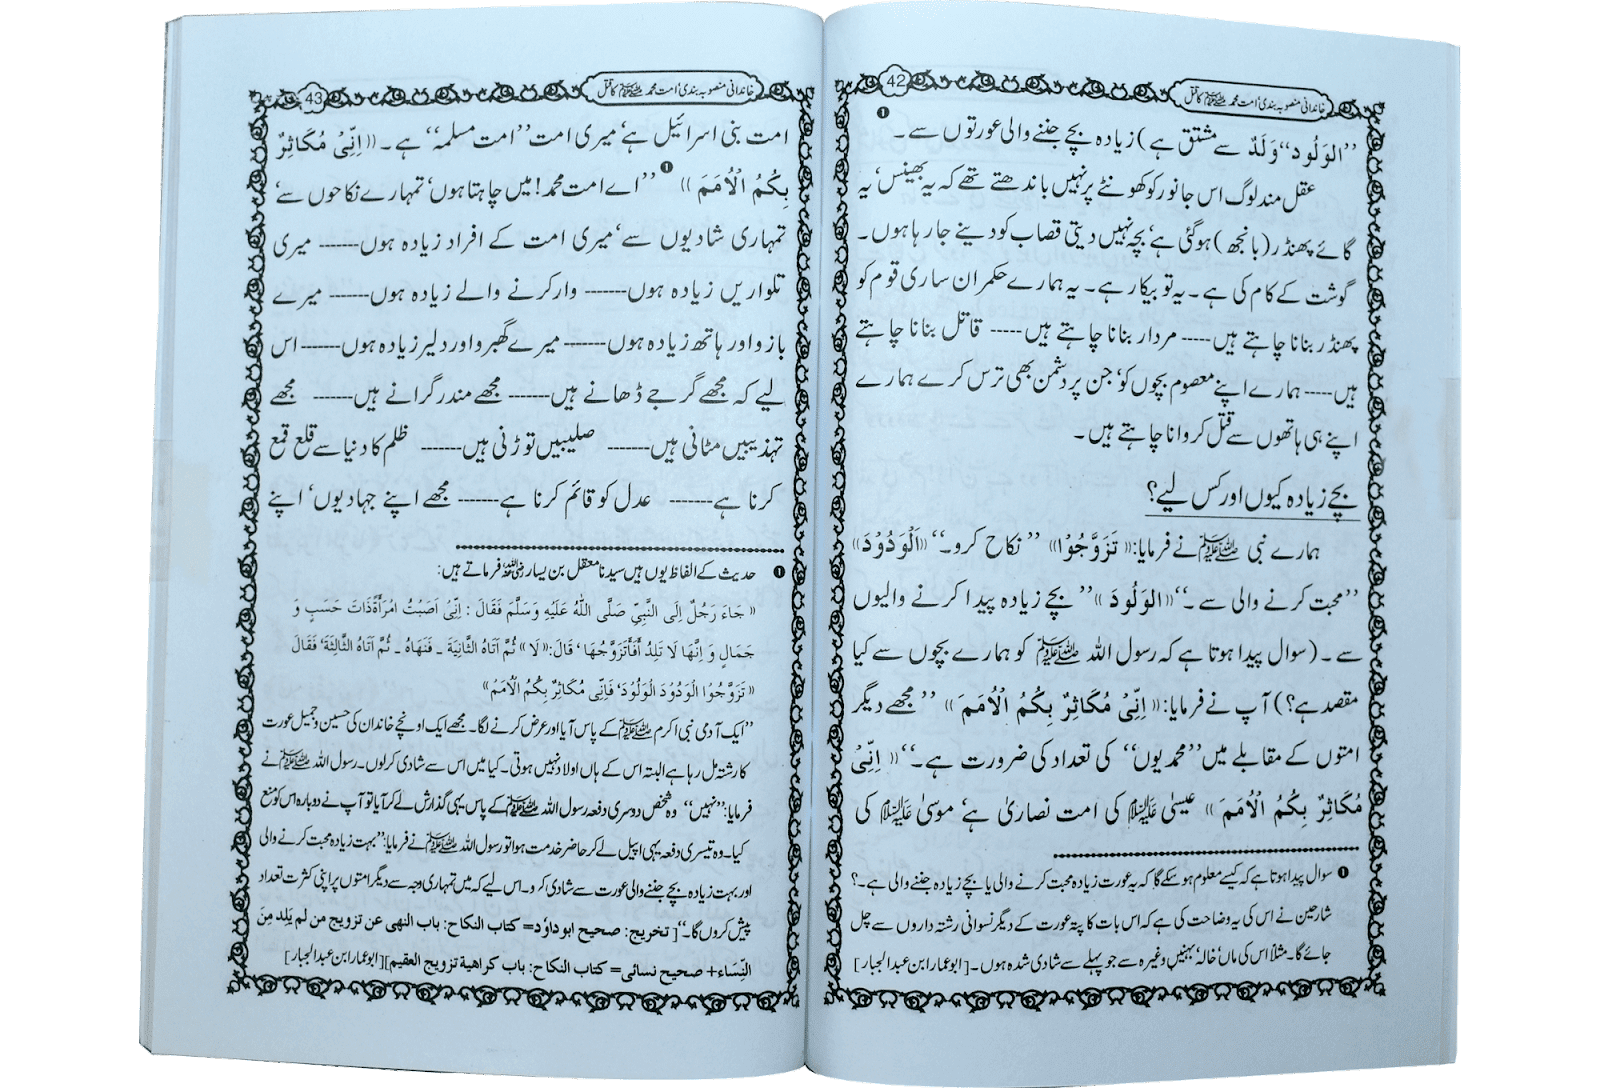 42
خاندانی منصوبہ بندی امت محمد ﷺ کا قتل
’’الوَلُود‘‘ وَلَدٌ سے مشتق ہے) زیادہ بچے جننے والی عورتوں سے۔ ❶
عقل مند لوگ اس جانور کو کھونٹے پر نہیں باندھتے تھے کہ یہ بھینس، یہ
گائے پھنڈر (بانجھ) ہوگئی ہے، بچہ نہیں دیتی قصاب کو دینے جا رہا ہوں۔
گوشت کے کام کی ہے۔ یہ تو بیکار ہے۔ یہ ہمارے حکمران ساری قوم کو
پھنڈر بنانا چاہتے ہیں ----- مردار بنانا چاہتے ہیں ----- قاتل بنانا چاہتے
ہیں ----- ہمارے اپنے معصوم بچوں کو، جن پر دشمن بھی ترس کرے ہمارے
اپنے ہی ہاتھوں سے قتل کروانا چاہتے ہیں۔
بچے زیادہ کیوں اور کس لیے؟
ہمارے نبی ﷺ نے فرمایا: «تَزَوَّجُوْا» ’’نکاح کرو۔‘‘ «اَلْوَدُوْدَ»
’’محبت کرنے والی سے۔‘‘ «الوَلُودَ» ’’بچے زیادہ پیدا کرنے والیوں
سے۔ (سوال پیدا ہوتا ہے کہ رسول اللہ ﷺ کو ہمارے بچوں سے کیا
مقصد ہے؟) آپ نے فرمایا: «اِنِّیْ مُکَاثِرٌ بِکُمُ الْاُمَمَ» ’’مجھے دیگر
امتوں کے مقابلے میں ’’محمدیوں‘‘ کی تعداد کی ضرورت ہے۔‘‘ «اِنِّیْ
مُکَاثِرٌ بِکُمُ الْاُمَمَ» عیسیٰ علیہ السلام کی امت نصاریٰ ہے، موسیٰ علیہ السلام کی
❶ سوال پیدا ہوتا ہے کہ کیسے معلوم ہو سکے گا کہ یہ عورت زیادہ محبت کرنے والی یا بچے زیادہ جننے والی ہے۔؟
شارحین نے اس کی یہ وضاحت کی ہے کہ اس بات کا پتہ عورت کے دیگر نسوانی رشتہ داروں سے چل
جائے گا۔ مثلاً اس کی ماں، خالہ، بہنیں وغیرہ سے جو پہلے سے شادی شدہ ہوں۔ [ابو عمار ابن عبدالجبار]
43
خاندانی منصوبہ بندی امت محمد ﷺ کا قتل
امت بنی اسرائیل ہے، میری امت ’’امت مسلمہ‘‘ ہے۔ «اِنِّیْ مُکَاثِرٌ
بِکُمُ الْاُمَمَ» ❶ ’’اے امت محمد! میں چاہتا ہوں، تمہارے نکاحوں سے،
تمہاری شادیوں سے، میری امت کے افراد زیادہ ہوں ------ میری
تلواریں زیادہ ہوں ------ وار کرنے والے زیادہ ہوں ------ میرے
بازو اور ہاتھ زیادہ ہوں ------ میرے گھبرو اور دلیر زیادہ ہوں ------ اس
لیے کہ مجھے گرجے ڈھانے ہیں ------ مجھے مندر گرانے ہیں ------ مجھے
تہذیبیں مٹانی ہیں ------ صلیبیں توڑنی ہیں ------ ظلم کا دنیا سے قلع قمع
کرنا ہے ------ عدل کو قائم کرنا ہے ------ مجھے اپنے جہادیوں، اپنے
❶ حدیث کے الفاظ یوں ہیں سیدنا معقل بن یسار رضی اللہ عنہ فرماتے ہیں:
«جَاءَ رَجُلٌ اِلَی النَّبِیِّ صَلَّی اللّٰہُ عَلَیْہِ وَسَلَّمَ فَقَالَ : اِنِّیْ اَصَبْتُ امْرَأَۃً ذَاتَ حَسَبٍ وَ
جَمَالٍ وَ اِنَّھَا لَا تَلِدُ أَفَأَتَزَوَّجُھَا ، قَالَ: «لَا» ثُمَّ اَتَاہُ الثَّانِیَۃَ ۔ فَنَھَاہُ ۔ ثُمَّ اَتَاہُ الثَّالِثَۃَ، فَقَالَ
«تَزَوَّجُوْا الْوَدُوْدَ الْوَلُوْدَ، فَاِنِّیْ مُکَاثِرٌ بِکُمُ الْاُمَمَ»
’’ایک آدمی نبی اکرم ﷺ کے پاس آیا اور عرض کرنے لگا۔ مجھے ایک اونچے خاندان کی حسین و جمیل عورت
کا رشتہ مل رہا ہے البتہ اس کے ہاں اولاد نہیں ہوتی۔ کیا میں اس سے شادی کر لوں۔ رسول اللہ ﷺ نے
فرمایا: ’’نہیں‘‘ وہ شخص دوسری دفعہ رسول اللہ ﷺ کے پاس یہی گذارش لے کر آیا تو آپ نے دوبارہ اس کو منع
کیا۔ وہ تیسری دفعہ یہی اپیل لے کر حاضر خدمت ہوا تو رسول اللہ ﷺ نے فرمایا: ’’بہت زیادہ محبت کرنے والی
اور بہت زیادہ بچے جننے والی عورت سے شادی کرو۔ اس لیے کہ میں تمہاری وجہ سے دیگر امتوں پر اپنی کثرت تعداد
پیش کروں گا۔‘‘ [تخریج: صحیح ابو داؤد= کتاب النکاح: باب النھی عن تزویج من لم یَلِد مِنَ
النِّسَاء+ صحیح نسائی= کتاب النکاح: باب کراھیة تزویج العقیم] [ابو عمار ابن عبدالجبار]